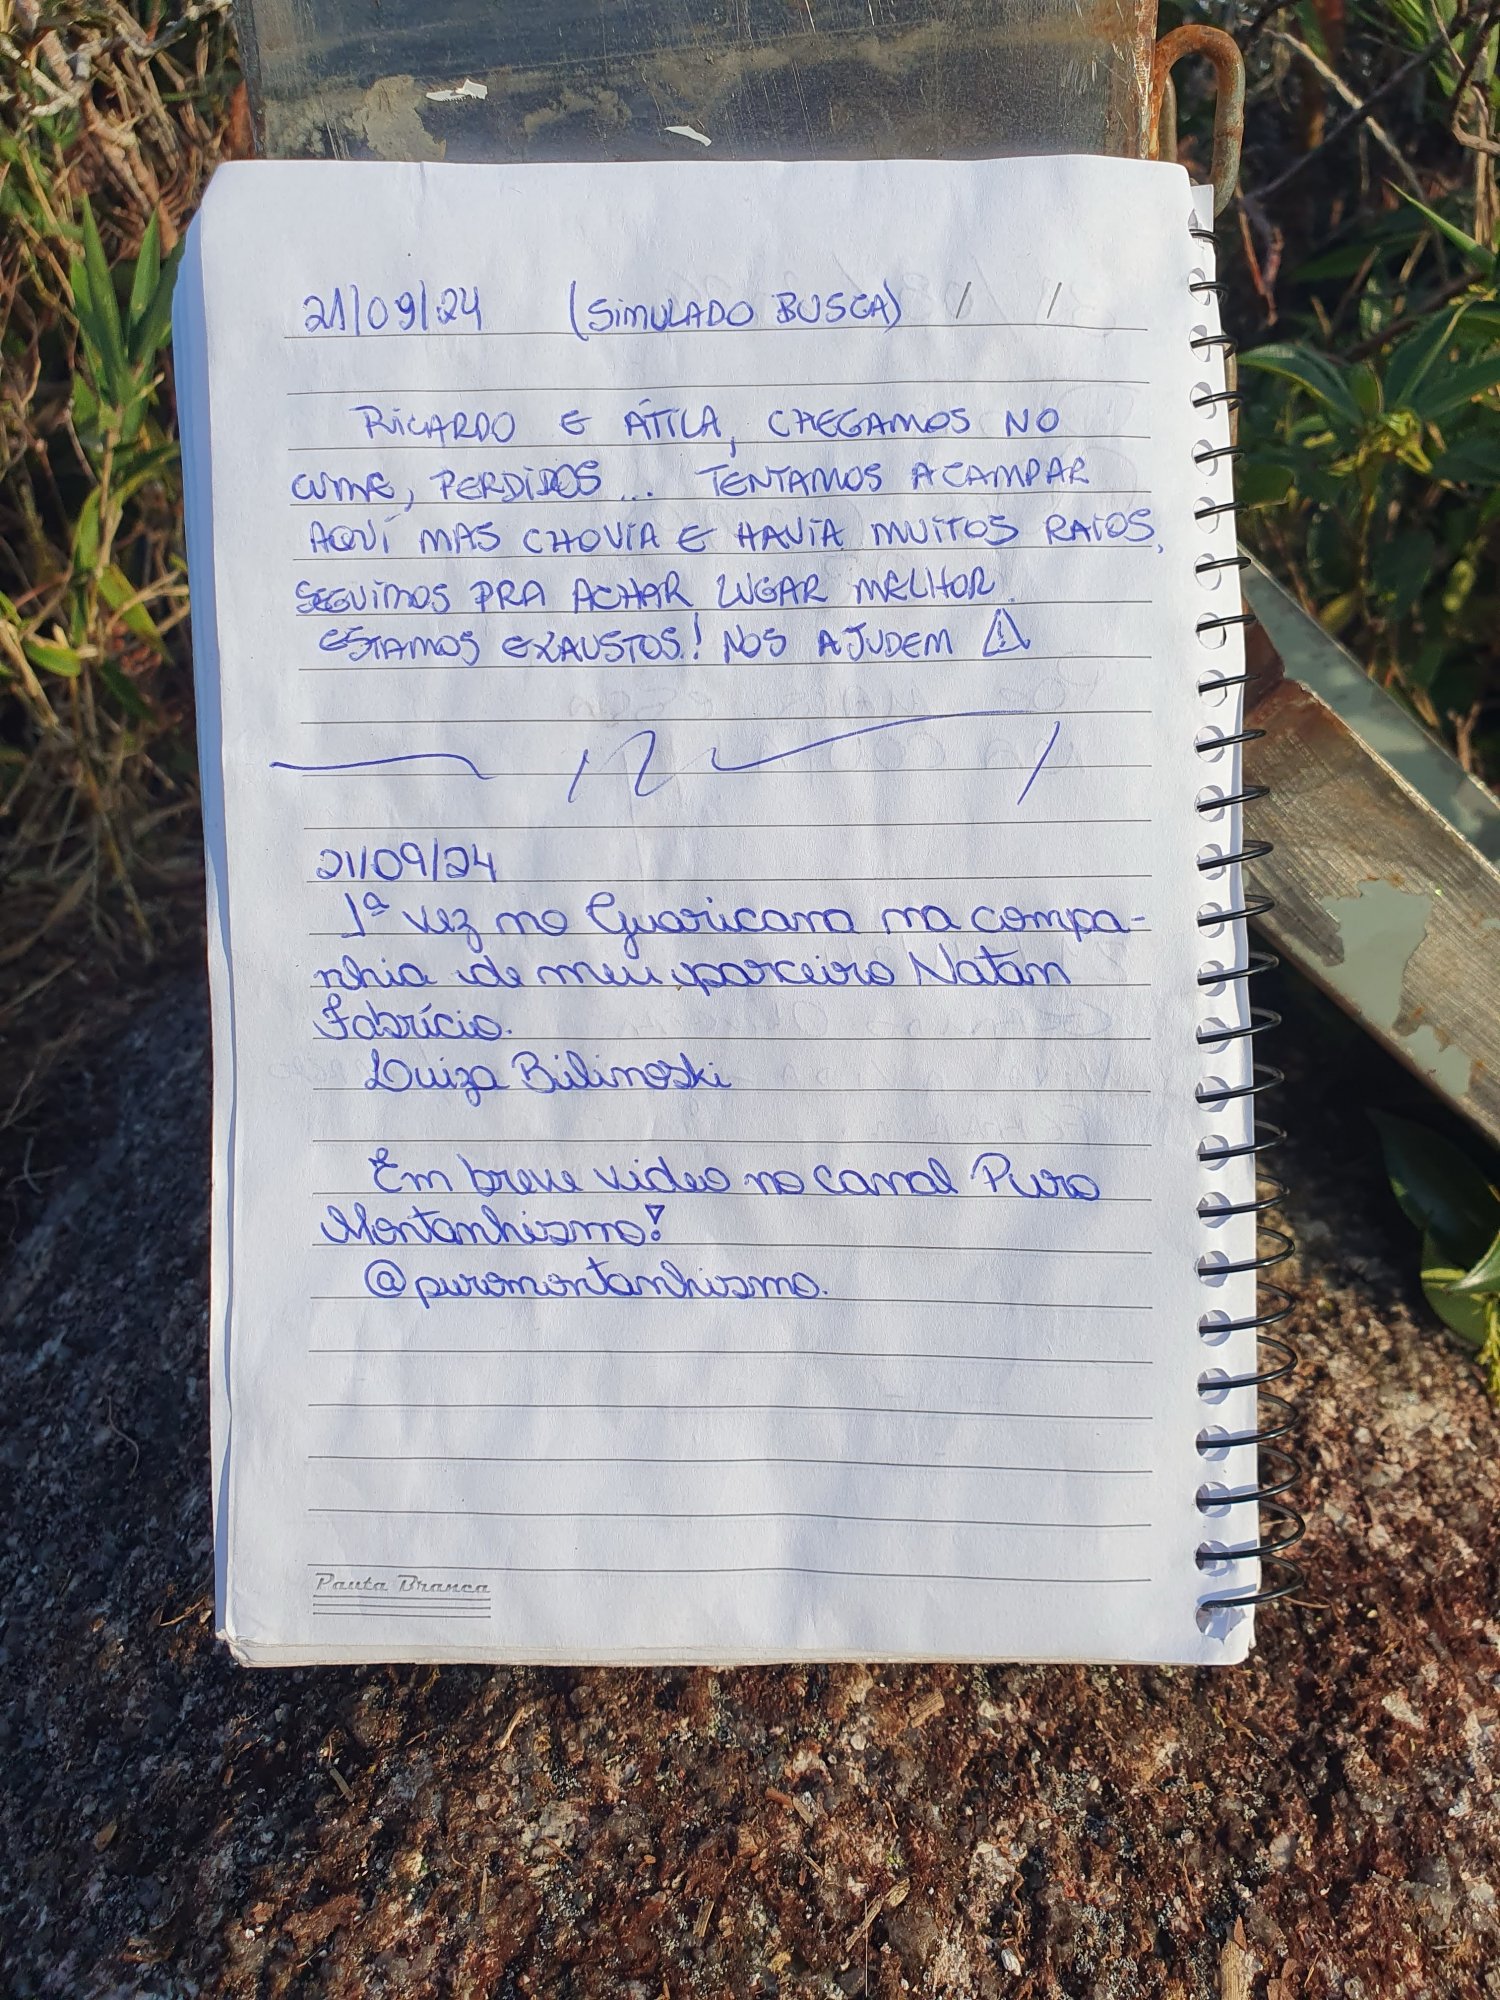 21/09/24 (SIMULADO BUSCA) / /
RICARDO E ÁTILA, CHEGAMOS NO
CUME, PERDIDOS... TENTAMOS ACAMPAR
AQUÍ MAS CHOVIA E HAVIA MUITOS RAIOS,
SEGUIMOS PRA ACHAR LUGAR MELHOR.
ESTAMOS EXAUSTOS! NOS AJUDEM ⚠
21/09/24
1ª vez no Guaricana na compa-
nhia de meu parceiro Natam
Fabrício.
Luiza Bilinoski
Em breve video no canal Puro
Montanhismo!
@puromontanhismo.
Pauta Branca